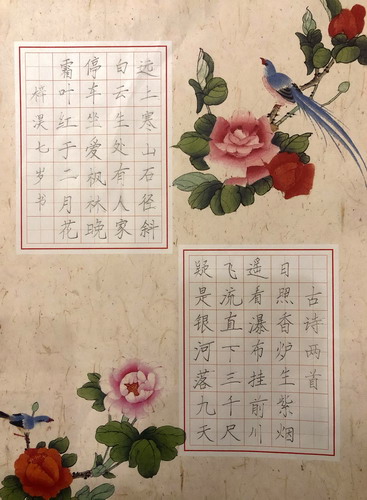 古诗两首
日照香炉生紫烟
遥看瀑布挂前川
飞流直下三千尺
疑是银河落九天
远上寒山石径斜
白云生处有人家
停车坐爱枫林晚
霜叶红于二月花
梓淏七岁书